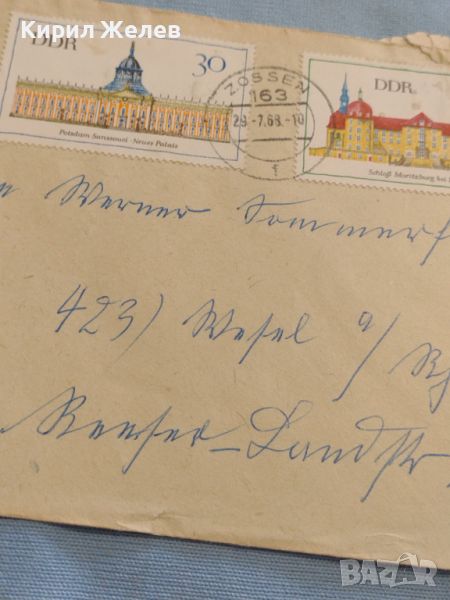 Кирил Желев
DDR
30
Potsdam Sanssouci · Neues Palais
ZOSSEN
163
29.-7.68.-10
f
DDR
Schloß Moritzburg bei
Werner Sommerf
423) Wesel a/Rh
Reeser-Landstr
BAZAR